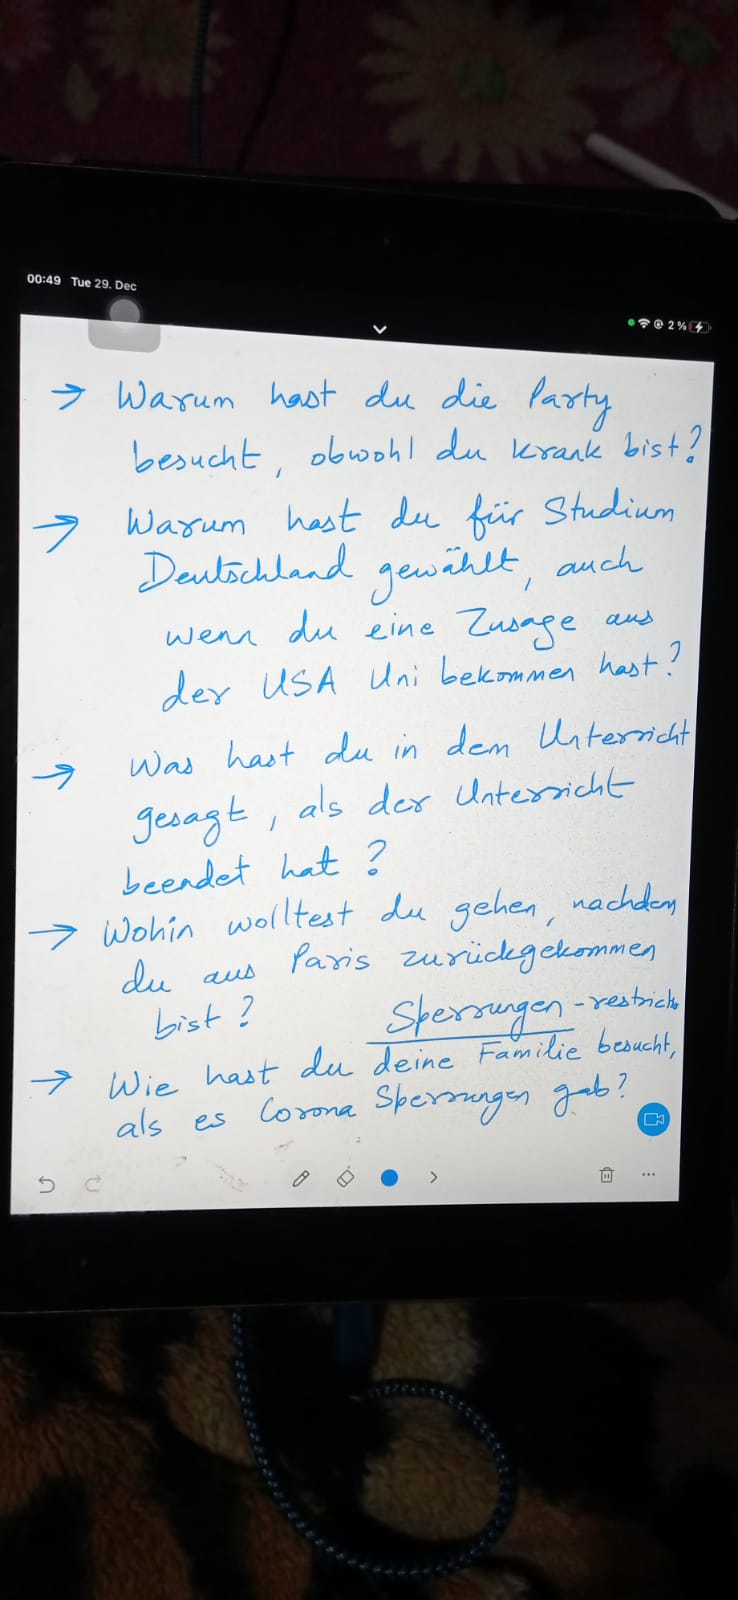 00:49 Tue 29. Dec
2%
→ Warum hast du die Party
besucht, obwohl du krank bist?
→ Warum hast du für Studium
Deutschland gewählt, auch
wenn du eine Zusage aus
der USA Uni bekommen hast?
→ Was hast du in dem Unterricht
gesagt, als der Unterricht
beendet hat?
→ Wohin wolltest du gehen, nachdem
du aus Paris zurückgekommen
bist?
Sperrungen -
→ Wie hast du deine Familie besucht,
als es Corona Sperrungen gab?